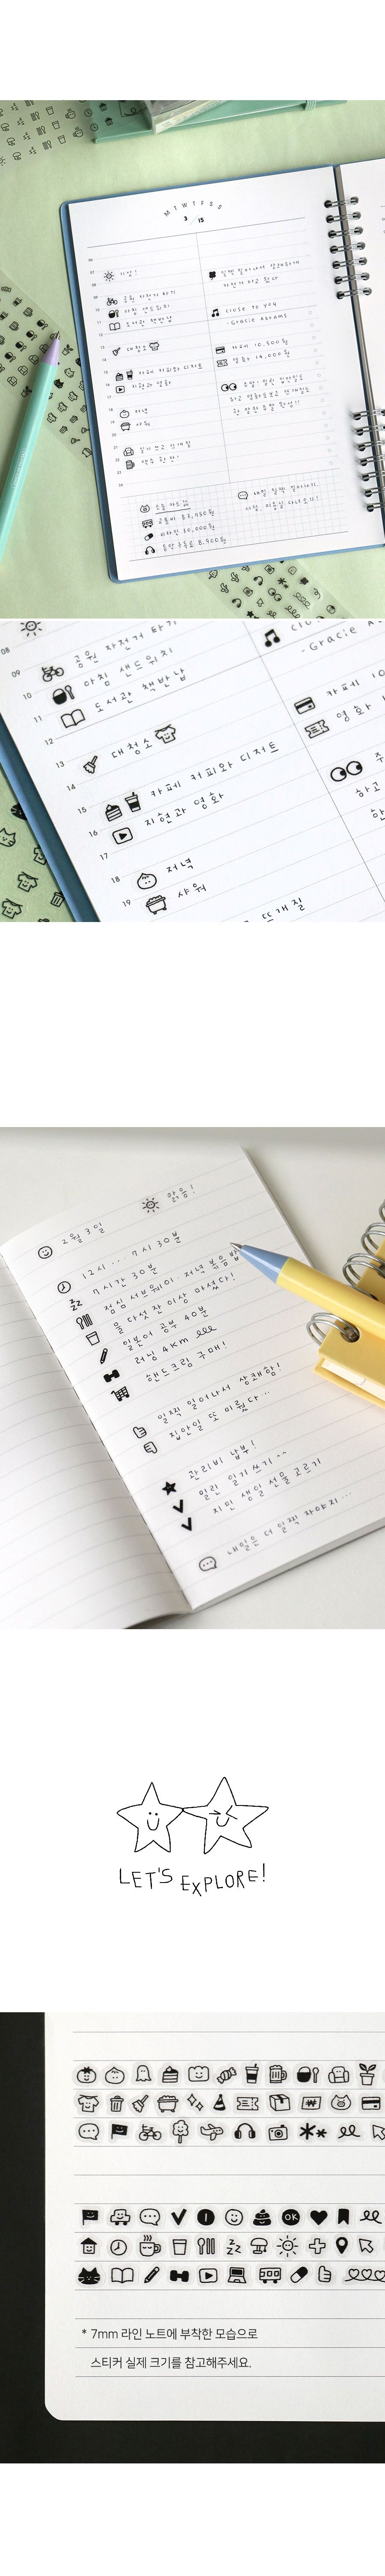 M T W T F S S
3 / 15
07
08
09
10
11
12
13
14
15
16
17
18
19
20
21
22
23
24
기상!
공원 자전거 타기
아침 샌드위치
도서관 책반납
대청소
카페 커피와 디저트
지현과 영화
저녁
샤워
일찍 일어나서 상쾌하게
close to you
-Gracie Abrams
카페 10,500원
영화 14,000원
08
공원 자전거 타기
09
아침 샌드위치
10
도서관 책반납
11
12
대청소
13
14
카페 커피와 디저트
15
지현과 영화
16
17
저녁
18
샤워
19
뜨개질
-Gracie Abrams
카페 10
영화
하고
한
2월 3일
맑음!
12시... 7시 30분
7시간 30분
점심 서브웨이. 저녁 볶음밥
물 다섯 잔 이상 마셨다!
일본어 공부 40분
러닝 4km
핸드크림 구매!
일찍 일어나서 상쾌함!
집안일 또 미뤘다...
관리비 납부!
밀린 일기 쓰기 ^^
지민 생일 선물 고르기
내일은 더 일찍 자야지...
LET'S EXPLORE!
OK
* 7mm 라인 노트에 부착한 모습으로
스티커 실제 크기를 참고해주세요.